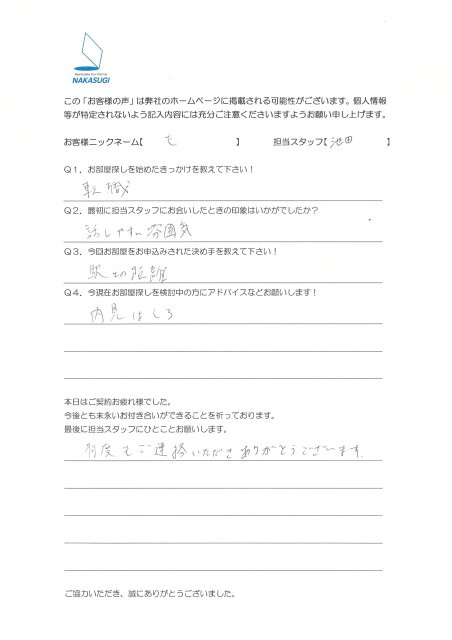 NAKASUGI
この「お客様の声」は弊社のホームページに掲載される可能性がございます。個人情報
等が特定されないよう記入内容には充分ご注意くださいますようお願い申し上げます。
お客様ニックネーム【 も 】 担当スタッフ【 池田 】
Q1．お部屋探しを始めたきっかけを教えて下さい！
転職
Q2．最初に担当スタッフにお会いしたときの印象はいかがでしたか？
話しやすい雰囲気
Q3．今回お部屋をお申込みされた決め手を教えて下さい！
駅との距離
Q4．今現在お部屋探しを検討中の方にアドバイスなどお願いします！
内見はしろ
本日はご契約お疲れ様でした。
今後とも末永いお付き合いができることを祈っております。
最後に担当スタッフにひとことお願いします。
何度もご連絡いただきありがとうございます。
ご協力いただき、誠にありがとうございました。